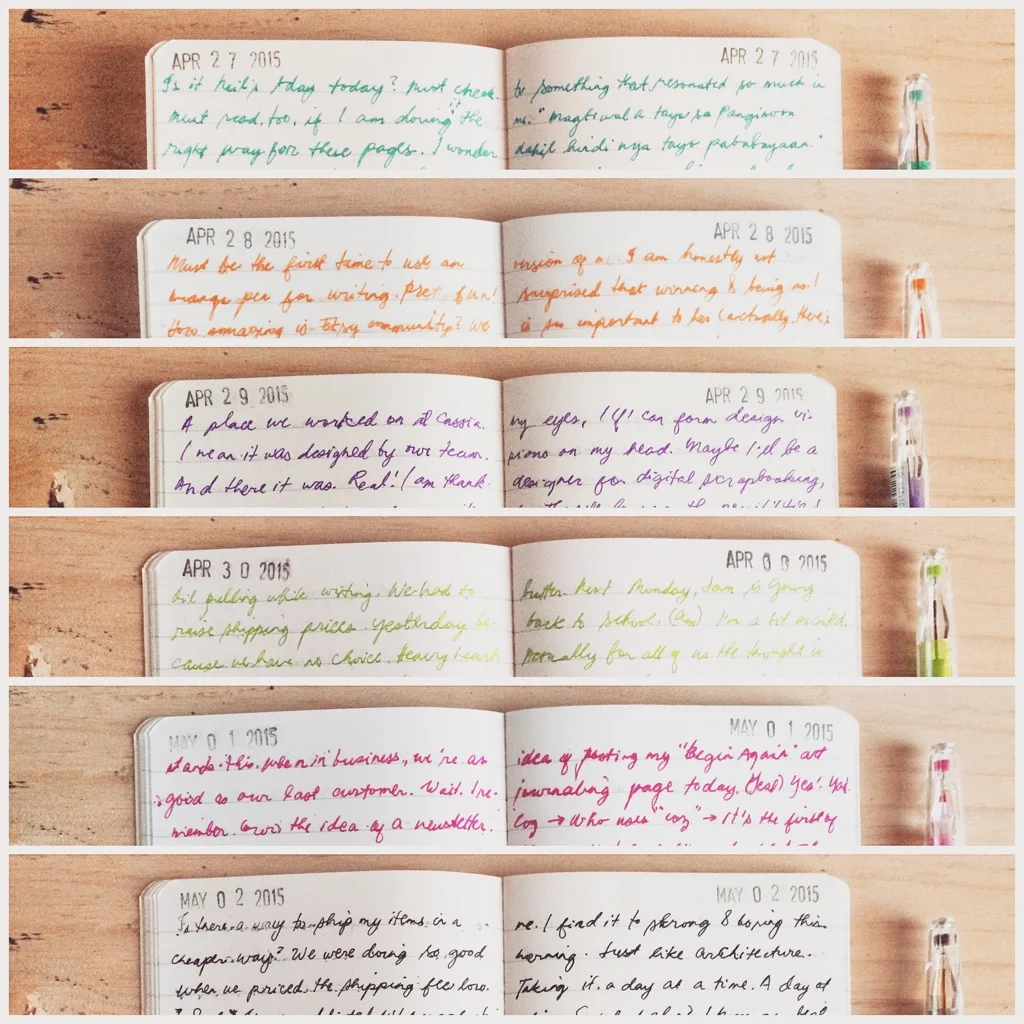 APR 27 2015
Is it Neil's bday today? Must check.
Must read, too, if I am doing it the
right way for these pages. I wonder
APR 27 2015
to something that resonated so much in
me. "Magtiwala tayo sa Panginoon
dahil hindi nya tayo pababayaan."
APR 28 2015
Must be the first time to use an
orange pen for writing. Pretty fun!
How amazing is Etsy community? We
APR 28 2015
version of me. I am honestly not
surprised that winning & being no. 1
is so important to her (actually, there's
APR 29 2015
A place we worked on at Cassia.
I mean it was designed by our team.
And there it was. Real! I am thank-
APR 29 2015
my eyes, I (I) can form design vi-
sions on my head. Maybe I'll be a
designer for digital scrapbooking,
APR 30 2015
Oil pulling while writing. We had to
raise shipping prices yesterday be-
cause we have no choice. Heavy hearts
APR 00 2015
butter. Next Monday, Sam is going
back to school. I'm a bit excited.
Actually for all of us the thought is
MAY 01 2015
this. When in business, we're as
good as our last customer. Wait. I re-
member the idea of a newsletter.
MAY 01 2015
idea of posting my "Begin Again" art
journaling page today. (Yes!) Yes! Yas!
Coz → Who uses "coz" → it's the first of
MAY 02 2015
Is there a way to ship my items in a
cheaper way? We were doing so good
when we priced the shipping fee low.
MAY 02 2015
me. I find it to strong & boring this
morning. Just like architecture.
Taking it a day at a time. A day at